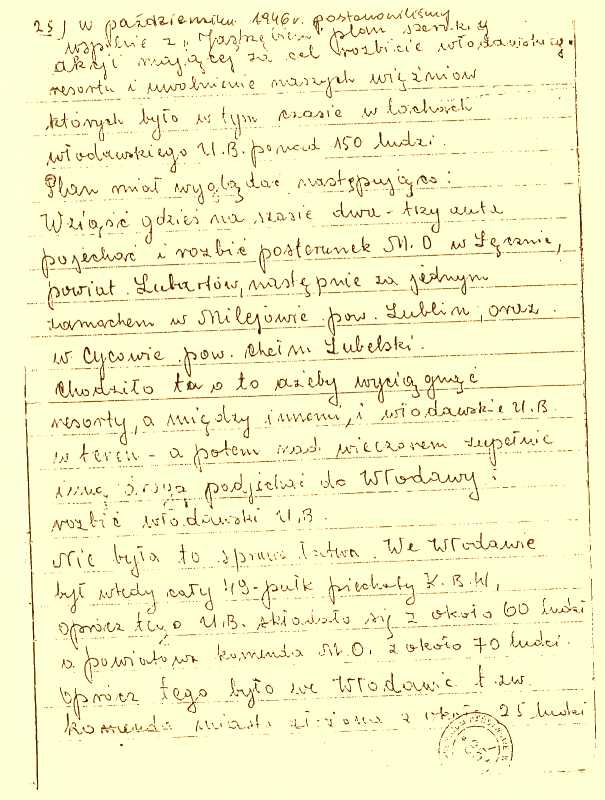 25) w październiku 1946 r. postanowiliśmy
wspólnie z „Jastrzębiem" plan szerokiej
akcji mającej za cel rozbicie włodawskiego
resortu i uwolnienie naszych więźniów
których było w tym czasie w lochach
włodawskiego U.B. ponad 150 ludzi.
Plan miał wyglądać następująco:
Wziąść gdzieś na szasie dwa-trzy auta
pojechać i rozbić posterunek M.O w Łęcznie,
powiat Lubartów, następnie za jednym
zamachem w Milejowie pow. Lublin, oraz
w Cycowie pow. Chełm Lubelski.
Chodziło tu o to ażeby wyciągnąć
resorty, a między innemi, i włodawskie U.B.
w teren - a potem nad wieczorem zupełnie
inną drogą podjechać do Włodawy i
rozbić włodawski U.B.
Nie była to sprawa łatwa. We Włodawie
był wtedy cały 49-pułk piechoty K.B.W,
oprócz tego U.B. składało się z około 60 ludzi
a powiatowa komenda M.O. z około 70 ludzi.
Oprócz tego było we Włodawie t.zw.
komenda miasta złożona z około 25 ludzi